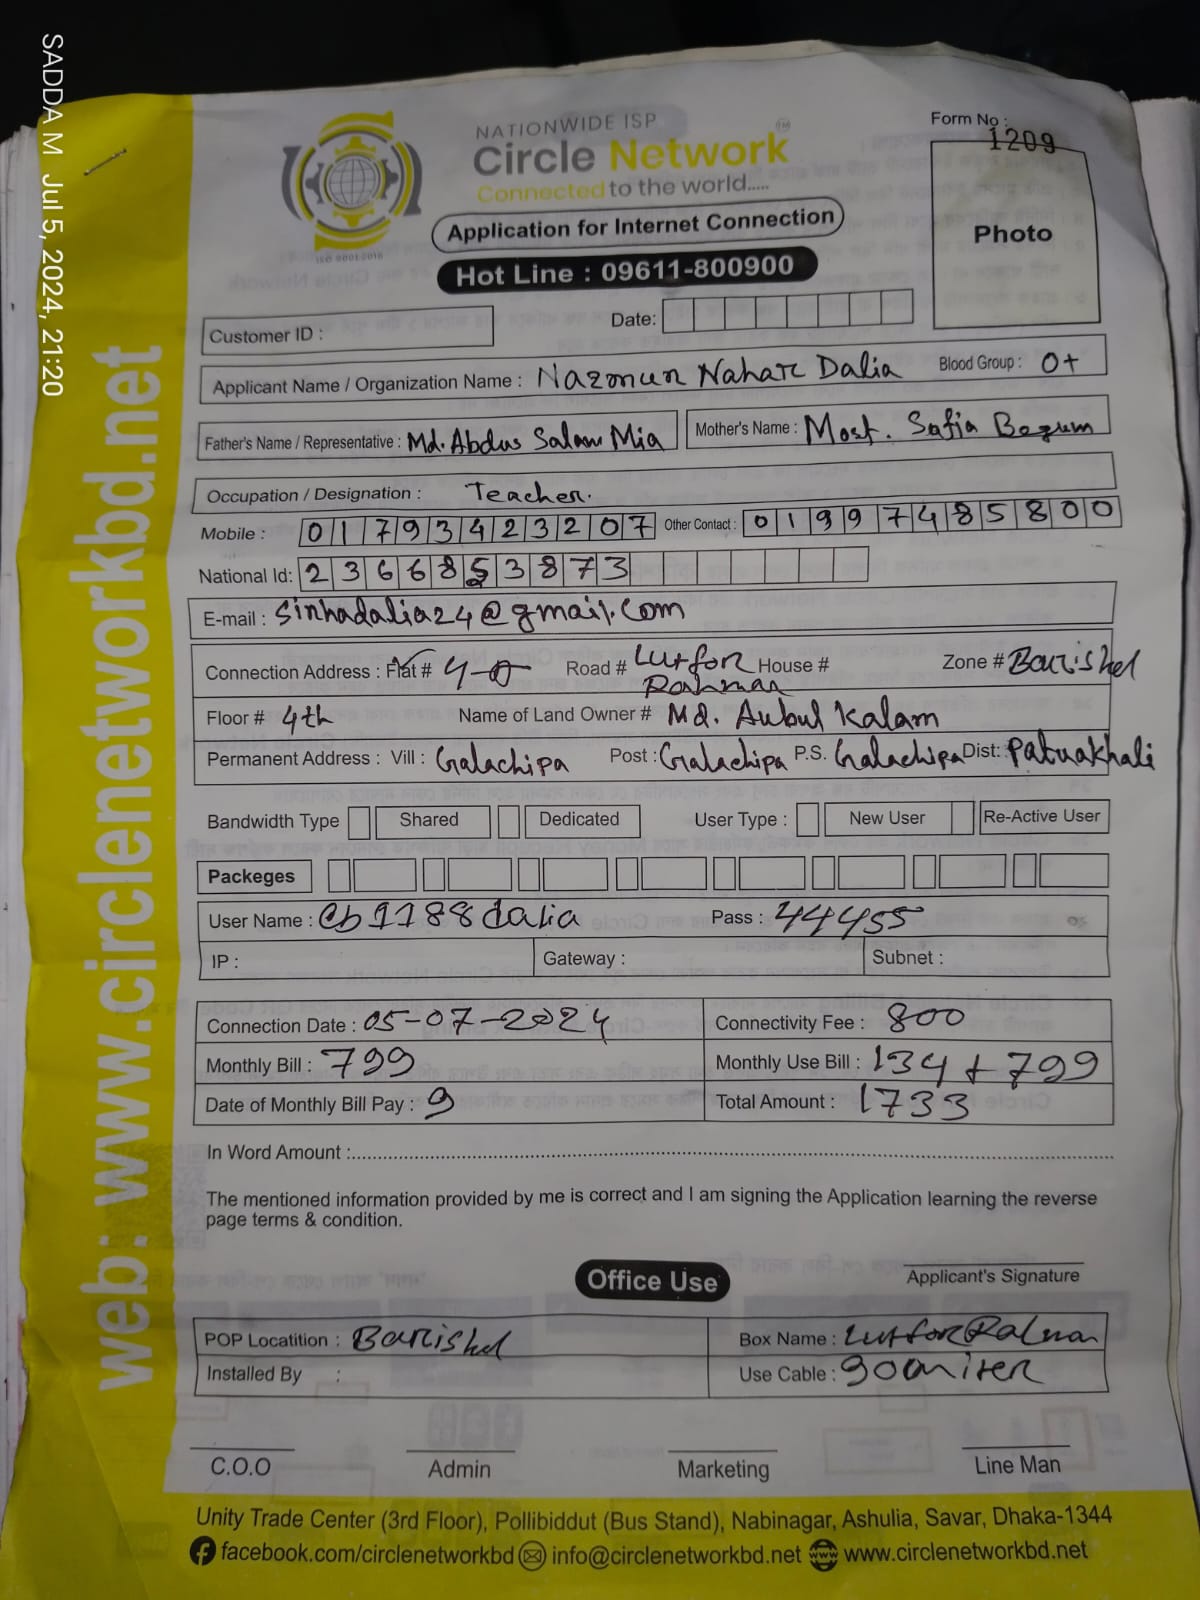 SADDA M Jul 5, 2024, 21:20
web: www.circlenetworkbd.net
NATIONWIDE ISP
Circle Network TM
Connected to the world.....
ISO 9001:2015
Application for Internet Connection
Hot Line : 09611-800900
Form No :
1209
Photo
Customer ID :
Date:
Applicant Name / Organization Name : Nazmun Nahar Dalia Blood Group : O+
Father's Name / Representative : Md. Abdus Salam Mia Mother's Name : Most. Safia Begum
Occupation / Designation : Teacher.
Mobile : 01793423207 Other Contact : 01997485800
National Id: 2366853873
E-mail : sinhadalia24@gmail.com
Connection Address : Flat # Road # Lutfor Rahman House # Zone # Barishal
Floor # 4th Name of Land Owner # Md. Aubul Kalam
Permanent Address : Vill : Galachipa Post : Galachipa P.S. Galachipa Dist: Patuakhali
Bandwidth Type Shared Dedicated User Type : New User Re-Active User
Packeges
User Name : cb1188dalia Pass : 44455
IP : Gateway : Subnet :
Connection Date : 05-07-2024 Connectivity Fee : 800
Monthly Bill : 799 Monthly Use Bill : 134 + 799
Date of Monthly Bill Pay : 9 Total Amount : 1733
In Word Amount :
The mentioned information provided by me is correct and I am signing the Application learning the reverse
page terms & condition.
Office Use
Applicant's Signature
POP Locatition : Barishal Box Name : Lutfor Rahman
Installed By : Use Cable :
C.O.O Admin Marketing Line Man
Unity Trade Center (3rd Floor), Pollibiddut (Bus Stand), Nabinagar, Ashulia, Savar, Dhaka-1344
facebook.com/circlenetworkbd info@circlenetworkbd.net www.circlenetworkbd.net